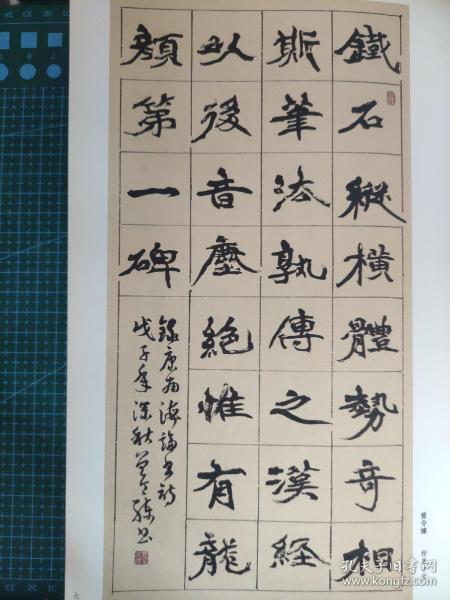 鐵石縱橫體勢奇相
斯筆法孰傳之漢經
以後音塵絕惟有龍
顏第一碑
錄康南海論書詩
戊子年深秋曾令
曾令
孔夫子旧书网